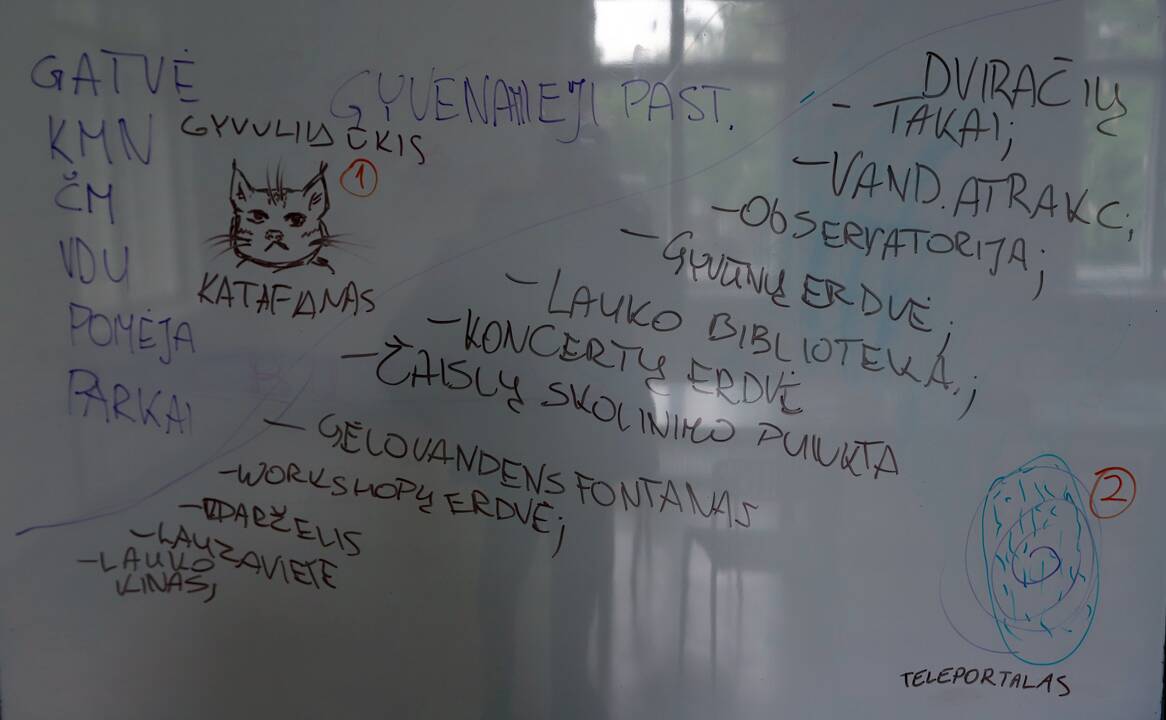 GATVĖ
KMN
ČM
VDU
POMĖJA
PARKAI
GYVENAMIEJI PAST.
GYVULIŲ ŪKIS
1
KATAFANAS
- DVIRAČIŲ
TAKAI;
- VAND. ATRAKC;
- OBSERVATORIJA;
- GYVŪNŲ ERDVĖ;
- LAUKO BIBLIOTEKA;
- KONCERTŲ ERDVĖ
- ŽAISLŲ SKOLINIMO PUNKTA
- GĖLOVANDENS FONTANAS
- WORKSHOPŲ ERDVĖ;
- DARŽELIS
- LAUŽAVIETĖ
- LAUKO
KINAS;
2
TELEPORTALAS